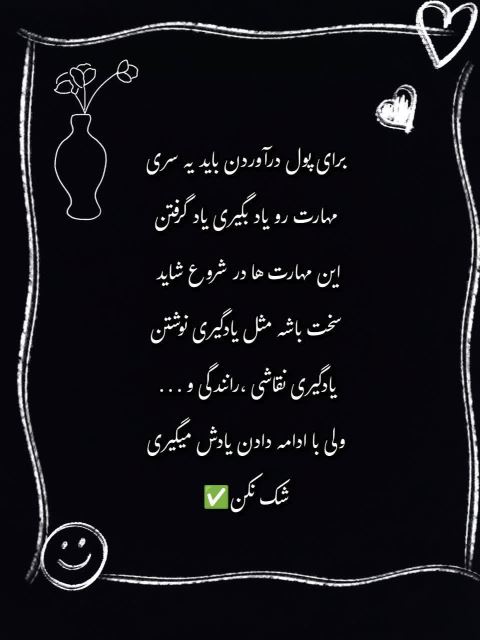 برای پول درآوردن باید یه سری
مهارت رو یاد بگیری یاد گرفتن
این مهارت ها در شروع شاید
سخت باشه مثل یادگیری نوشتن
یادگیری نقاشی ،رانندگی و...
ولی با ادامه دادن یادش میگیری
شک نکن✅